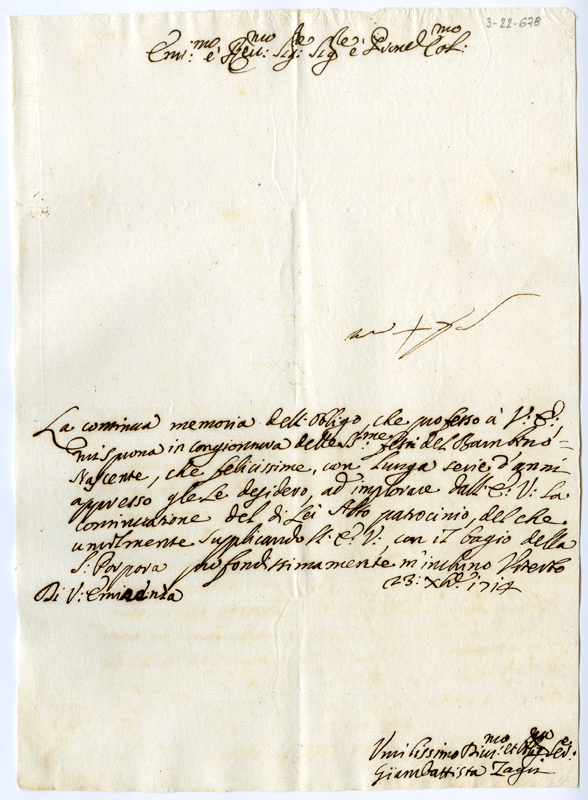 3-22-678
Em:mo è Reu:mo Sig:re Sig:re è Prone Col:mo
La continua memoria dell'obligo, che professo à V: E:
mi sprona in congionnura delle S:me feste del Bambino
Nascente, che felicissime, con lunga serie d'anni
appresso gle Le desidero, ad implorare dall'E: V: La
continuazione del di Lei Alto patrocinio, del che
umilmente supplicando l'E: V: con il bagio della
S. Porpora profondissimamente m'inchino Viterbo
Di V: Eminenza 23: Xbre 1714
Umilissimo Diuo:mo et
Giambattista Zagri